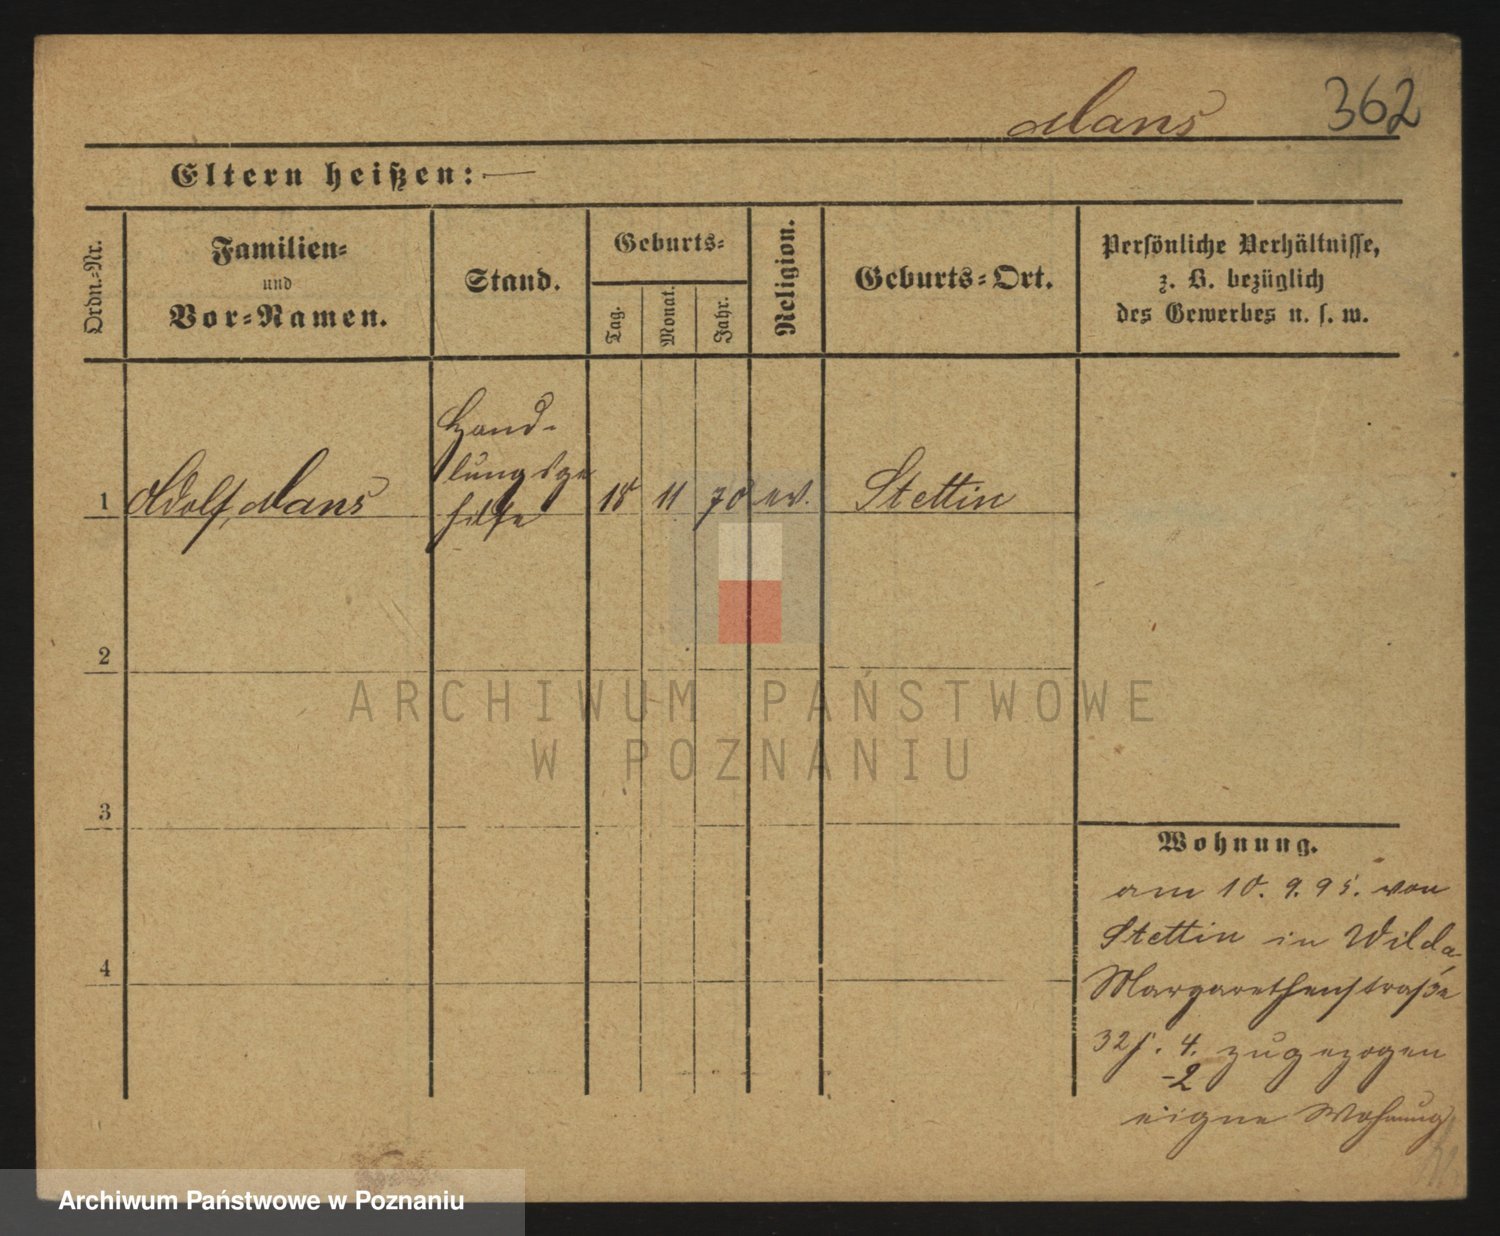 Mans 362
Eltern heißen: —
Ordn.-Nr.
Familien-
und
Vor-Namen.
Stand.
Geburts-
Tag.
Monat.
Jahr.
Religion.
Geburts-Ort.
Persönliche Verhältnisse,
z. B. bezüglich
des Gewerbes u. s. w.
Hand-
lungsge
hilfe
1 Adolf, Mans 18 11 70 ev. Stettin
2
3
4
Wohnung.
am 10. 9. 95. von
Stettin in Wilda,
Margarethenstraße
4. zugezogen
-2
eigne Wohnung
ARCHIWUM PAŃSTWOWE
W POZNANIU
Archiwum Państwowe w Poznaniu